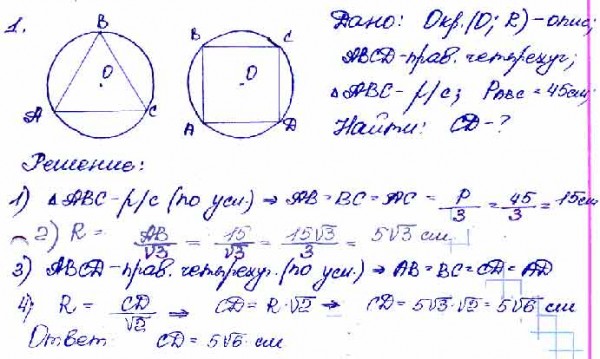 1.
B
O
A
C
B
C
O
A
D
Дано: Окр.(O; R) – опис;
ABCD – прав. четырехуг;
△ABC – р/с; P_ABC = 45см;
Найти: CD – ?
Решение:
1) △ABC – р/с (по усл.) ⇒ AB = BC = AC = P/3 = 45/3 = 15см
2) R = AB/√3 = 15/√3 = 15√3/3 = 5√3 см
3) ABCD – прав. четырехуг. (по усл.) ⇒ AB = BC = CD = AD
4) R = CD/√2 ⇒ CD = R·√2 ⇒ CD = 5√3·√2 = 5√6 см
Ответ: CD = 5√6 см